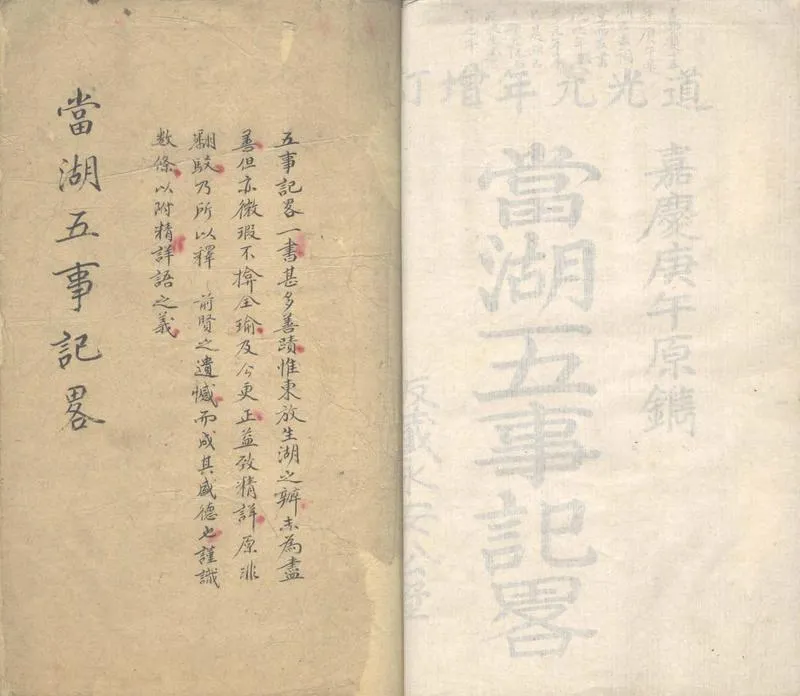 道光元年增訂
嘉慶庚午原鐫
當湖五事記畧
藏永安
五事記畧一書甚多善蹟惟東放生湖之辨未為盡
善但亦微瑕不揜全瑜及今更正益致精詳原非
翻駁乃所以釋 前賢之遺憾而成其盛德也謹識
数條以附精詳語之義
當湖五事記畧